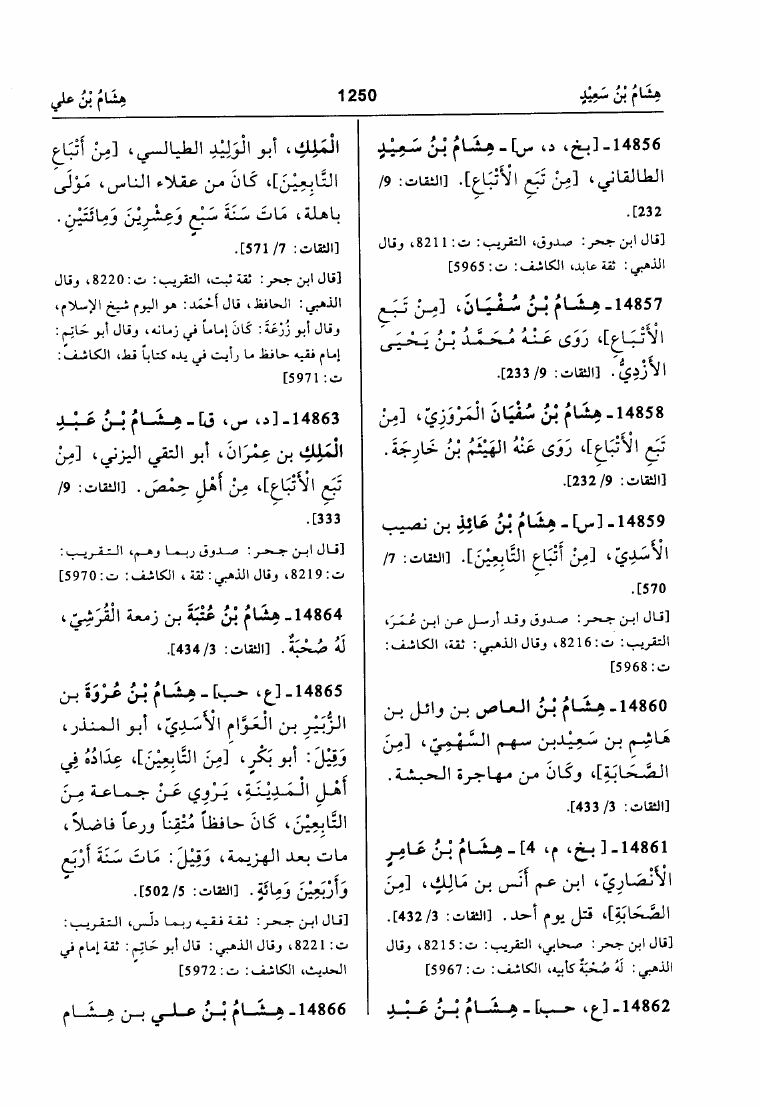 هِشَامُ بْنُ سَعِيْدٍ
1250
هِشَامُ بْنُ علي
14856ـ [بخ، د، س] ـ هِشَامُ بْنُ سَعِيْدٍ
الطالقاني، [مِنْ تَبَعِ الْأَتْبَاعِ]. [الثقات: 9/
232].
[قال ابن حجر: صدوق، التقريب: ت: 8211، وقال
الذهبي: ثقة عابد، الكاشف: ت: 5965]
14857ـ هِشَامُ بْنُ سُفْيَانَ، [مِنْ تَبَعِ
الْأَتْبَاعِ]، رَوَى عَنْهُ مُحَمَّدُ بْنُ يَحْيَى
الْأَزْدِيُّ. [الثقات: 9/ 233].
14858ـ هِشَامُ بْنُ سُفْيَانَ المَرْوَزِيّ، [مِنْ
تَبَعِ الْأَتْبَاعِ]، رَوَى عَنْهُ الهَيْثَمُ بْنُ خَارِجَةَ.
[الثقات: 9/ 232].
14859ـ [س] ـ هِشَامُ بْنُ عَائِذِ بن نصيب
الْأَسَدِيّ، [مِنْ أَتْبَاعِ التَّابِعِيْنَ]. [الثقات: 7/
570].
[قال ابن حجر: صدوق وقد أرسل عن ابن عُمَرَ،
التقريب: ت: 8216، وقال الذهبي: ثقة، الكاشف:
ت: 5968]
14860ـ هِشَامُ بْنُ العاص بن وائل بن
هَاشِمِ بن سَعِيْدبن سهم السَّهْمِيّ، [مِنَ
الصَّحَابَةِ]، وكَانَ من مهاجرة الحبشة.
[الثقات: 3/ 433].
14861ـ [بخ، م، 4] ـ هِشَامُ بْنُ عَامِرٍ
الْأَنْصَارِيّ، ابن عم أَنَس بن مَالِكٍ، [مِنَ
الصَّحَابَةِ]، قتل يوم أحد. [الثقات: 3/ 432].
[قال ابن حجر: صحابي، التقريب: ت: 8215، وقال
الذهبي: لَهُ صُحْبَةٌ كأبيه، الكاشف: ت: 5967]
14862ـ [ع، حب] ـ هِشَامُ بْنُ عَبْدِ
الْمَلِكِ، أبو الْوَلِيْدِ الطيالسي، [مِنْ أَتْبَاعِ
التَّابِعِيْنَ]، كَانَ من عقلاء الناس، مَوْلَى
باهلة، مَاتَ سَنَةَ سَبْعٍ وَعِشْرِيْنَ وَمِائَتَيْنِ.
[الثقات: 7/ 571].
[قال ابن حجر: ثقة ثبت، التقريب: ت: 8220، وقال
الذهبي: الحافظ، قال أَحْمَد: هو اليوم شيخ الإسلام،
وقال أبو زُرْعَةَ: كَانَ إماماً في زمانه، وقال أبو حَاتِمٍ:
إمام فقيه حافظ ما رأيت في يده كتاباً قط، الكاشف:
ت: 5971]
14863ـ [د، س، ق] ـ هِشَامُ بْنُ عَبْدِ
الْمَلِكِ بن عِمْرَانَ، أبو التقي اليزني، [مِنْ
تَبَعِ الْأَتْبَاعِ]، مِنْ أَهْلِ حِمْصَ. [الثقات: 9/
333].
[قال ابن حجر: صدوق ربما وهم، التقريب:
ت: 8219، وقال الذهبي: ثقة ، الكاشف: ت: 5970]
14864ـ هِشَامُ بْنُ عُتْبَةَ بن زمعة الْقُرَشِيّ،
لَهُ صُحْبَةٌ. [الثقات: 3/ 434].
14865ـ [ع، حب] ـ هِشَامُ بْنُ عُرْوَةَ بن
الزُّبَيْرِ بن الْعَوَّامِ الْأَسَدِيّ، أبو المنذر،
وَقِيْلَ: أبو بَكْرٍ، [مِنَ التَّابِعِيْنَ]، عِدَادُهُ فِي
أَهْلِ الْمَدِيْنَةِ، يَرْوِي عَنْ جماعة مِنَ
التَّابِعِيْنَ، كَانَ حافظاً مُتْقِناً ورعاً فاضلاً،
مات بعد الهزيمة، وَقِيْلَ: مَاتَ سَنَةَ أَرْبَعٍ
وَأَرْبَعِيْنَ وَمِائَةٍ. [الثقات: 5/ 502].
[قال ابن حجر: ثقة فقيه ربما دلّس، التقريب:
ت: 8221، وقال الذهبي: قال أبو حَاتِمٍ: ثقة إمام في
الحديث، الكاشف: ت: 5972]
14866ـ هِشَامُ بْنُ علي بن هِشَام